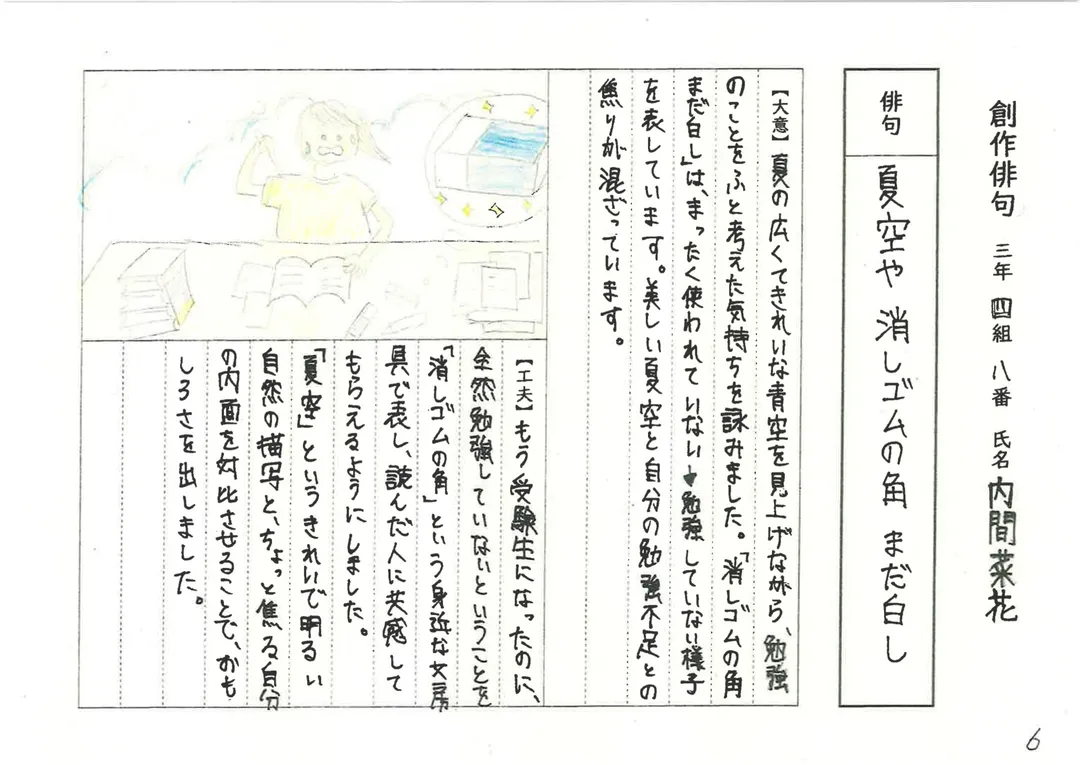 創作俳句 三年 四組 八番 氏名 内間菜花
俳句 夏空や 消しゴムの角 まだ白し
【大意】夏の広くてきれいな青空を見上げながら、勉強
のことをふと考えた気持ちを詠みました。「消しゴムの角
まだ白し」は、まったく使われていない→勉強していない様子
を表しています。美しい夏空と自分の勉強不足との
焦りが混ざっています。
【工夫】もう受験生になったのに、
全然勉強していないということを
「消しゴムの角」という身近な文房
具で表し、読んだ人に共感して
もらえるようにしました。
「夏空」というきれいで明るい
自然の描写と、ちょっと焦る自分
の内面を対比させることで、おも
しろさを出しました。
6